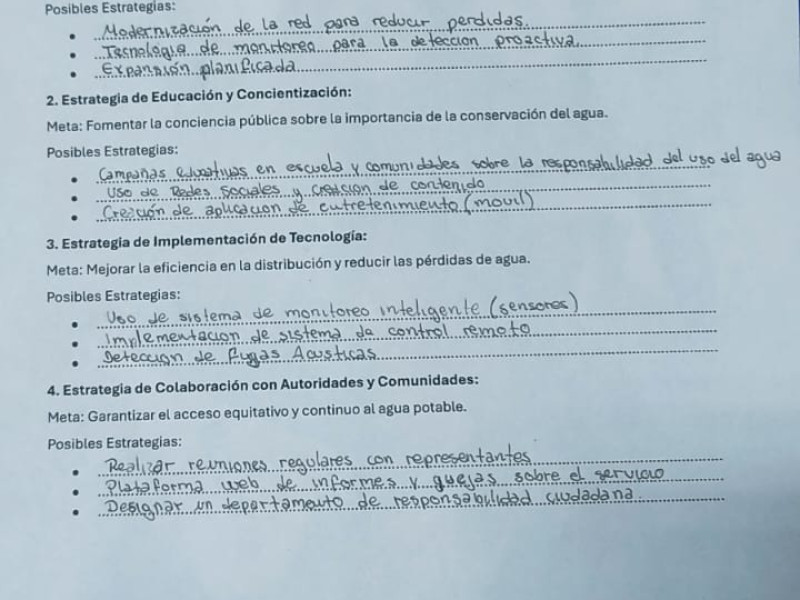 Posibles Estrategias:
• Modernización de la red para reducir perdidas
• Tecnologia de monitoreo para la deteccion proactiva
• Expansión planificada
2. Estrategia de Educación y Concientización:
Meta: Fomentar la conciencia pública sobre la importancia de la conservación del agua.
Posibles Estrategias:
• Campañas educativas en escuela y comunidades sobre la responsabilidad del uso del agua
• Uso de Redes sociales y creacion de contenido
• Creación de aplicacion de entretenimiento (movil)
3. Estrategia de Implementación de Tecnología:
Meta: Mejorar la eficiencia en la distribución y reducir las pérdidas de agua.
Posibles Estrategias:
• Uso de sistema de monitoreo inteligente (sensores)
• Implementacion de sistema de control remoto
• Deteccion de fugas Acusticas
4. Estrategia de Colaboración con Autoridades y Comunidades:
Meta: Garantizar el acceso equitativo y continuo al agua potable.
Posibles Estrategias:
• Realizar reuniones regulares con representantes
• Plataforma web de informes y quejas sobre el servicio
• Designar un departamento de responsabilidad ciudadana